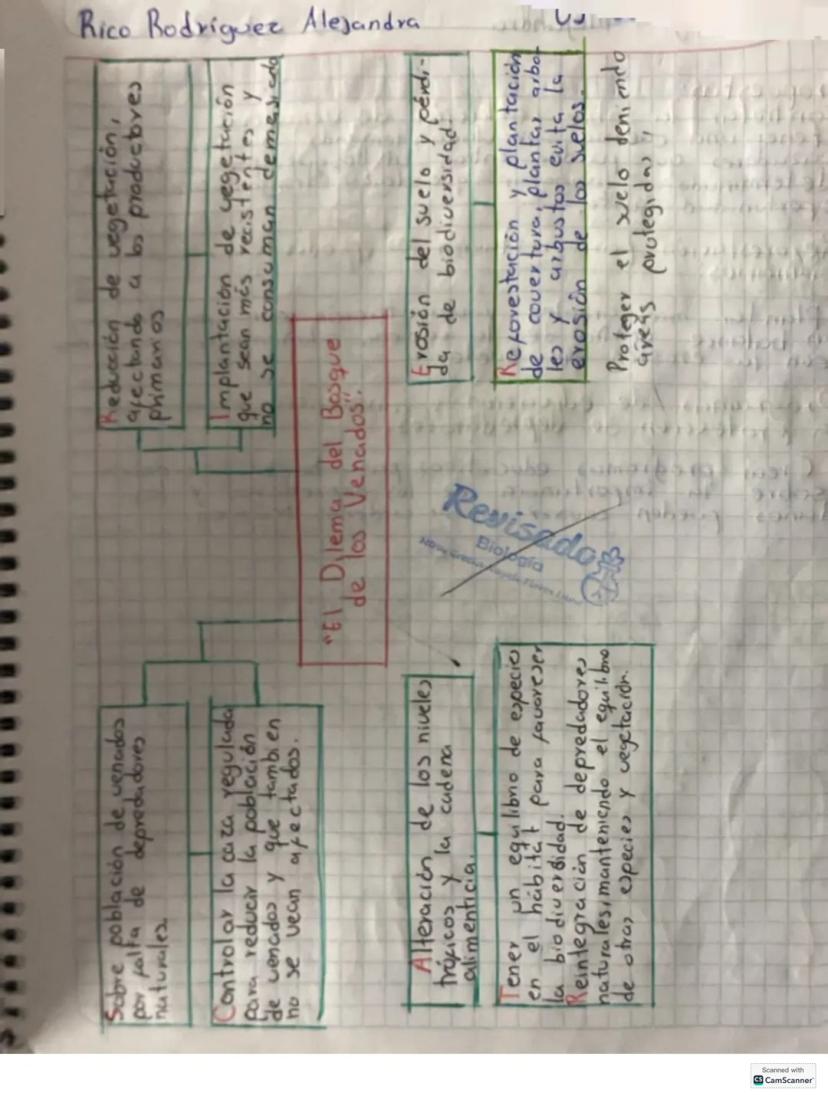 Rico Rodríguez Alejandra
Sobre población de venados
por falta de depredadores
naturales.
Controlar la caza regulada
para reducir la población
de venados y que tambien
no se vean afectados.
Reducción de vegetación,
afectando a los productores
primarios
Implantación de vegetación
que sean más recistentes y
no se consuman demasiado
"El Dilema del Bosque
de los Venados".
Alteración de los niveles
tróficos y la cadena
alimenticia.
Tener un equilibrio de especies
en el hábitat para favoreser
la biodiverdidad.
Reintegración de depredadores
naturales, manteniendo el equilibrio
de otras especies y vegetación.
Revisado
Biología
Erosión del suelo y pérdi-
da de biodiversidad.
Reforestación y plantación
de covertura, plantas arbo-
les y arbustos evita la
erosión de los suelos.
Proteger el suelo deniendo
áreas protegidas,
Scanned with
CS CamScanner